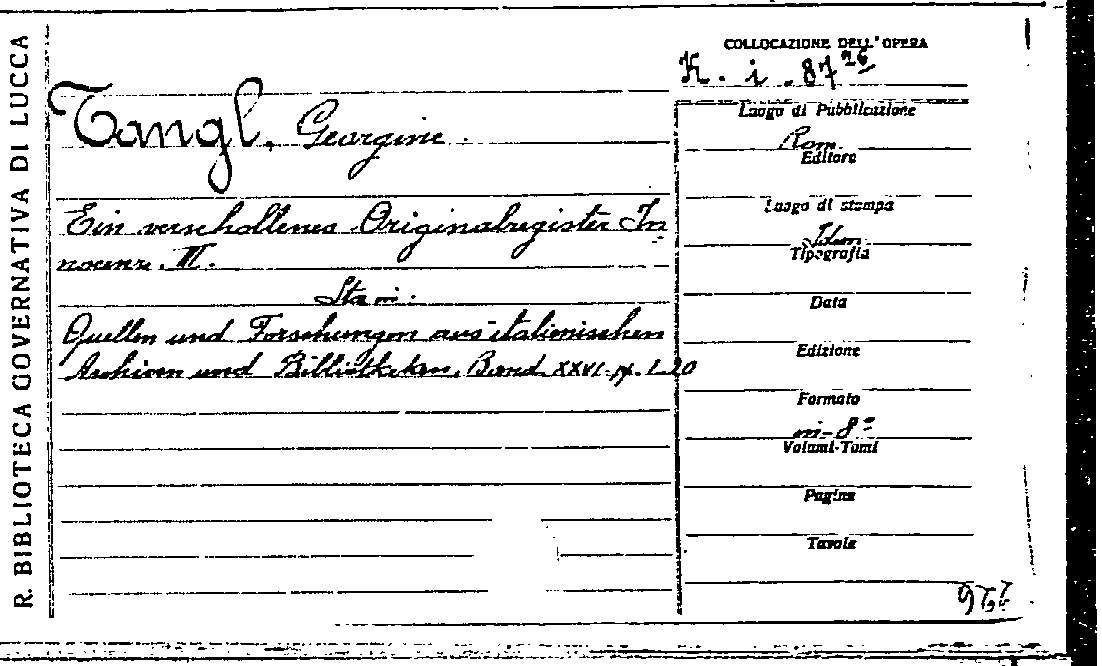 R. BIBLIOTECA GOVERNATIVA DI LUCCA
COLLOCAZIONE DELL'OPERA
K. i. 87 26
Tangl, Georgine.
Ein verschollenes Originalregister In
nocenz. III.
Sta in:
Quellen und Forschungen aus italienischen
Archiven und Bibliotheken, Band XXVI. pp. 1-20
Luogo di Pubblicazione
Rom
Editore
Luogo di stampa
Idem
Tipografia
Data
Edizione
Formato
in-8º
Volumi-Tomi
Pagine
Tavole